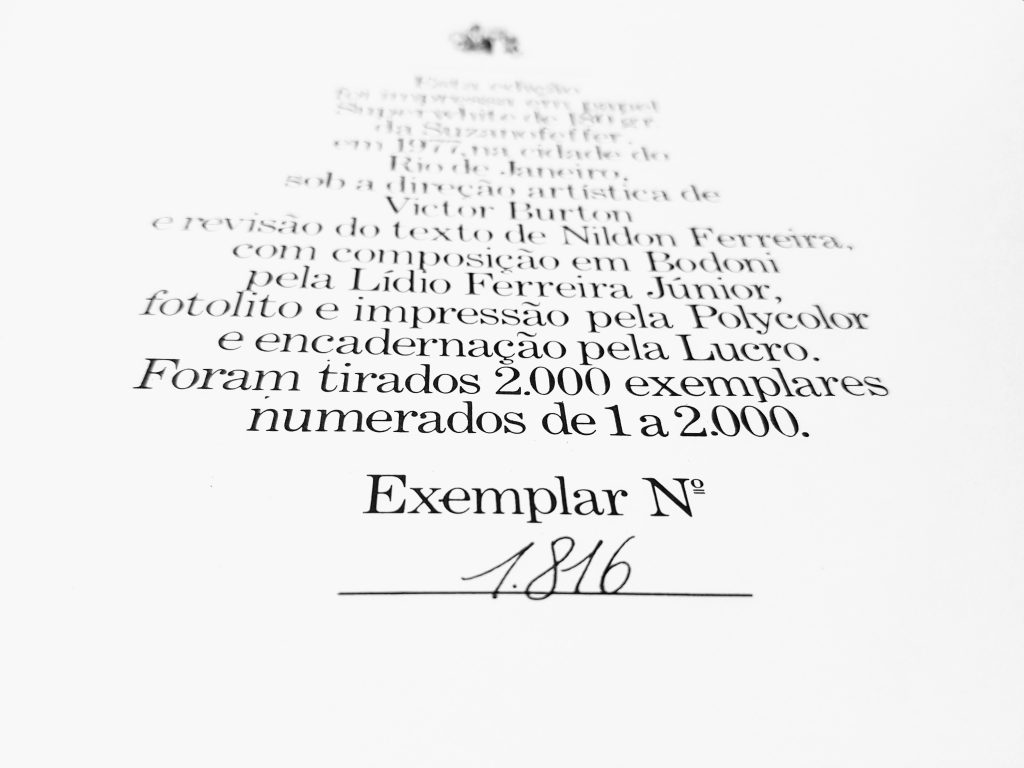 Esta edição
foi impressa em papel
Superwhite de 180 gr.
da Suzanofeffer.
em 1977, na cidade do
Rio de Janeiro,
sob a direção artística de
Victor Burton
e revisão do texto de Nildon Ferreira,
com composição em Bodoni
pela Lídio Ferreira Júnior,
fotolito e impressão pela Polycolor
e encadernação pela Lucro.
Foram tirados 2.000 exemplares
numerados de 1 a 2.000.
Exemplar Nº
1.816